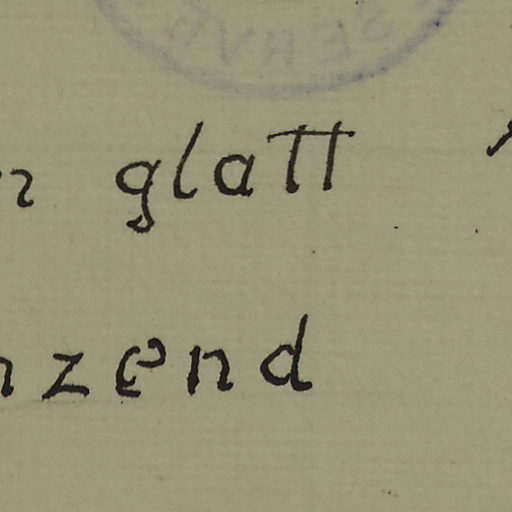 n glatt
nzend